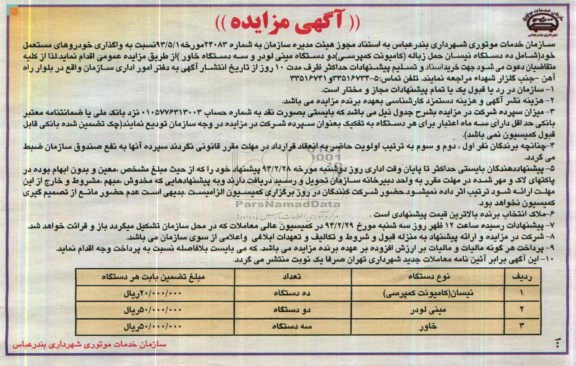 (( آگهی مزایده ))
سازمان خدمات موتوری شهرداری بندرعباس به استناد مجوز هیئت مدیره سازمان به شماره ۲۴۰۸۳ مورخ ۹۳/۵/۱ نسبت به واگذاری خودروهای مستعمل
خود(شامل ده دستگاه نیسان حمل زباله (کامیونت کمپرسی)دو دستگاه مینی لودر و سه دستگاه خاور )از طریق مزایده عمومی اقدام نماید.لذا از کلیه
متقاضیان دعوت می شود جهت خرید اسناد و تسلیم پیشنهادات حداکثر ظرف مدت ۱۰ روز از تاریخ انتشار آگهی به دفتر امور اداری سازمان واقع در بلوار راه
آهن -جنب گلزار شهداء مراجعه نمایند. تلفن تماس:۵-۳۳۵۱۶۷۳۳و۳۳۵۱۶۷۳۱
۱- سازمان در رد یا قبول یک یا تمام پیشنهادات مجاز و مختار است.
۲- هزینه نشر آگهی و هزینه دستمزد کارشناسی بعهده برنده مزایده می باشد.
۳- میزان سپرده شرکت در مزایده بشرح جدول ذیل می باشد که بایستی بصورت نقد به شماره حساب ۰۱۰۵۷۷۶۳۱۳۰۰۳ نزد بانک ملی یا ضمانتنامه معتبر
بانکی حد اقل دارای سه ماه اعتبار برای هر دستگاه به تفکیک بعنوان سپرده شرکت در مزایده در وجه سازمان تودیع نمایند(چک تضمین شده بانکی قابل
قبول کمیسیون نمی باشد).
۴- چنانچه برندگان نفر اول ، دوم و سوم به ترتیب اولویت حاضر به انعقاد قرارداد در مهلت مقرر قانونی نگردند سپرده آنها به نفع صندوق سازمان ضبط
می گردد.
۵- پیشنهاددهندگان بایستی حداکثر تا پایان وقت اداری روز دوشنبه مورخه ۹۳/۲/۲۸ پیشنهاد خود را که از حیث مبلغ مشخص ،معین و بدون ابهام بوده در
پاکتهای لاک و مهر شده در مهلت مقرر به واحد دبیرخانه سازمان تحویل و رسید دریافت دارند وبه پیشنهادهایی که مخدوش ،مبهم ،مشروط و خارج از این
مهلت ارائه شود ترتیب اثر داده نمیشود.حضور شرکت کنندگان در روز برگزاری کمیسیون الزامیست .بدیهی است عدم حضور مانع از تصمیم گیری
کمیسیون نخواهد بود.
۶- ملاک انتخاب برنده بالاترین قیمت پیشنهادی است .
۷- پیشنهادات رسیده ساعت ۱۲ ظهر روز سه شنبه مورخ ۹۳/۲/۲۹ در کمیسیون عالی معاملات که در محل سازمان تشکیل میگردد باز و قرائت خواهد شد.
۸- شرکت در مزایده و ارائه پیشنهاد به منزله قبول و شروط و تکالیف و تعهدات ابلاغی واعلامی از سوی سازمان می باشد.
۹- پرداخت هر گونه مالیات و مالیات بر ارزش افزوده بر عهده برنده مزایده می باشد که می بایست بلافاصله نسبت به پرداخت وجه اقدام نماید.
۱۰- این آگهی برابر آئین نامه معاملات جدید شهرداری تهران صرفا یک نوبت منتشر می گردد.
ردیف نوع دستگاه تعداد مبلغ تضمین بابت هر دستگاه
۱ نیسان(کامیونت کمپرسی) ده دستگاه ۲۰/۰۰۰/۰۰۰ریال
۲ مینی لودر دو دستگاه ۵۰/۰۰۰/۰۰۰ریال
۳ خاور سه دستگاه ۵۰/۰۰۰/۰۰۰ریال
سازمان خدمات موتوری شهرداری بندرعباس
ParsNamadData